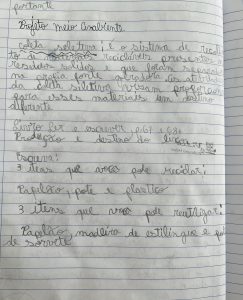 portante
Projeto meio Ambiente
coleta seletiva; é o sistema de recolhi
to de recicláveis presentes n
resíduos sólidos e que foram separado
na própia fonte geradora. os
da coleta seletiva visam proporcionar
para esses materiais um destino
diferente
Livro Ler e escrever p. 67 e 68
Produção e destino do
Escreva:
3 itens que pode reciclar:
Papelão, pote e plastico
3 itens que pode reutilizar:
Papelão, madeira de estilingue e pote
de sorvete